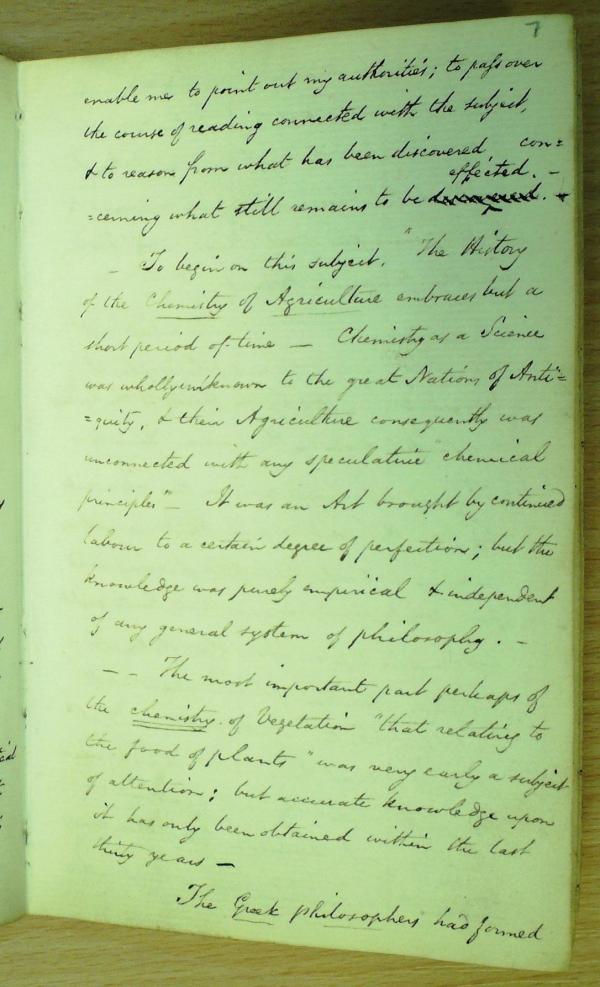 7
enable me to point out my authorities; to pass over
the course of reading connected with the subject,
& to reason from what has been discovered, con=
effected. -
=cerning what still remains to be
- To begin on this subject. "The History
of the Chemistry of Agriculture embraces but a
short period of time — Chemistry as a Science
was wholly unknown to the great Nations of Anti=
=quity, & their Agriculture consequently was
unconnected with any speculative "chemical
principles" - It was an Art brought by continued
labour to a certain degree of perfection; but the
knowledge was purely empirical & independent
of any general system of philosophy. -
- - The most important part perhaps of
the chemistry of Vegetation "that relating to
the food of plants" was very early a subject
of attention; but accurate knowledge upon
it has only been obtained within the last
thirty years —
The Greek philosophers had formed